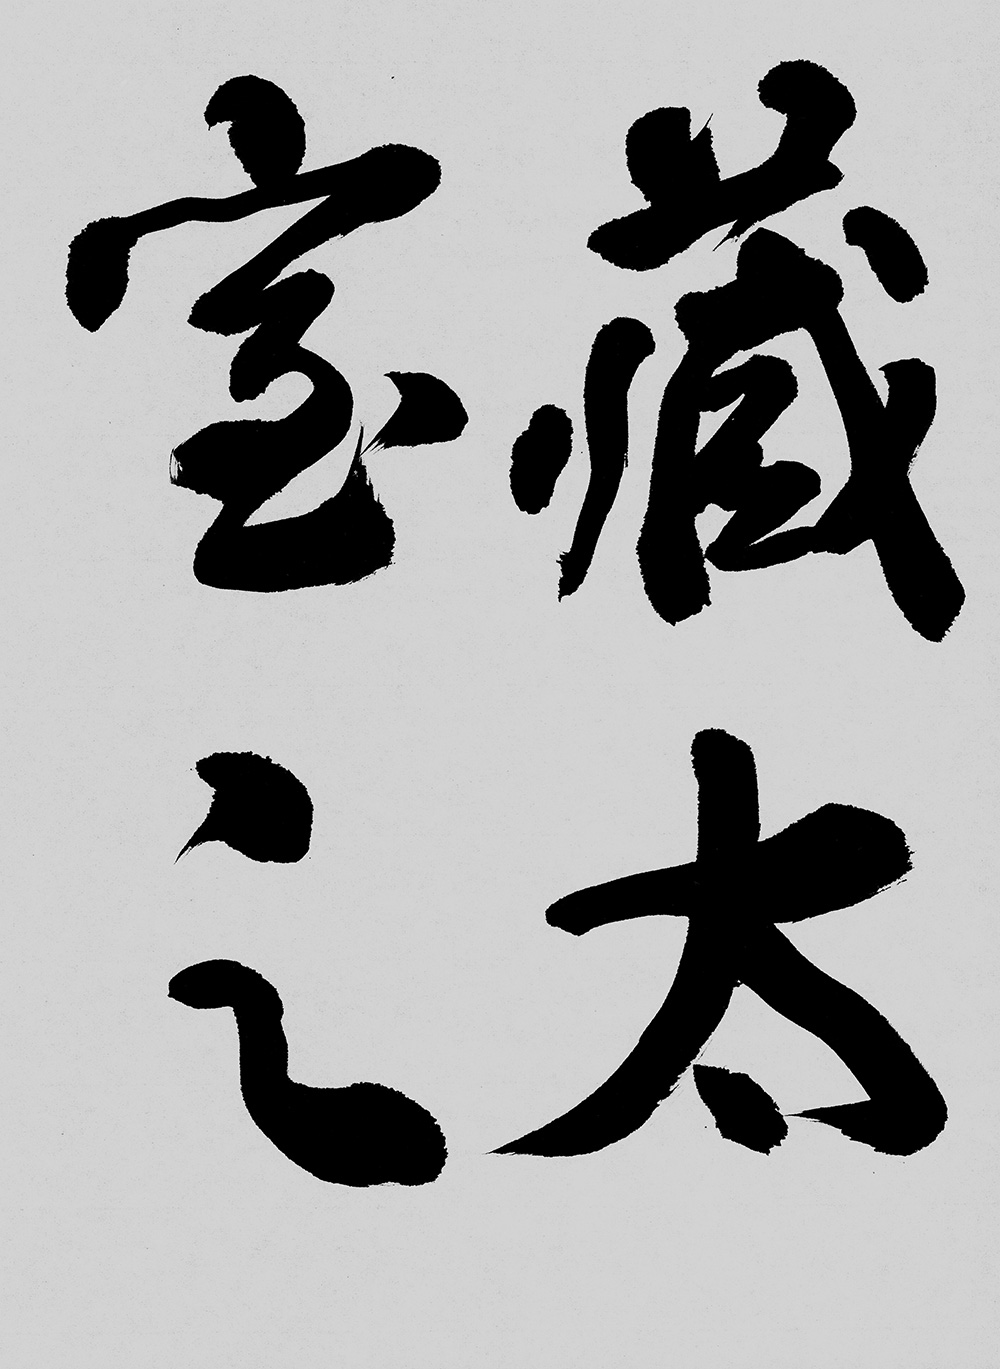 藏太
室之